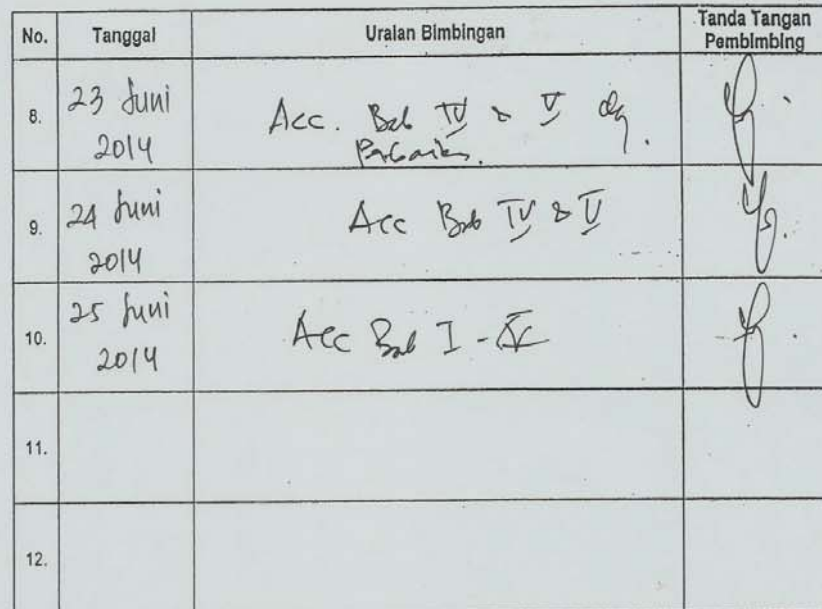 No. Tanggal Uraian Bimbingan Tanda Tangan Pembimbing
8. 23 Juni 2014 Acc. Bab IV & V dg. Perbaikan.
9. 24 Juni 2014 Acc Bab IV & V
10. 25 Juni 2014 Acc Bab I -
11.
12.